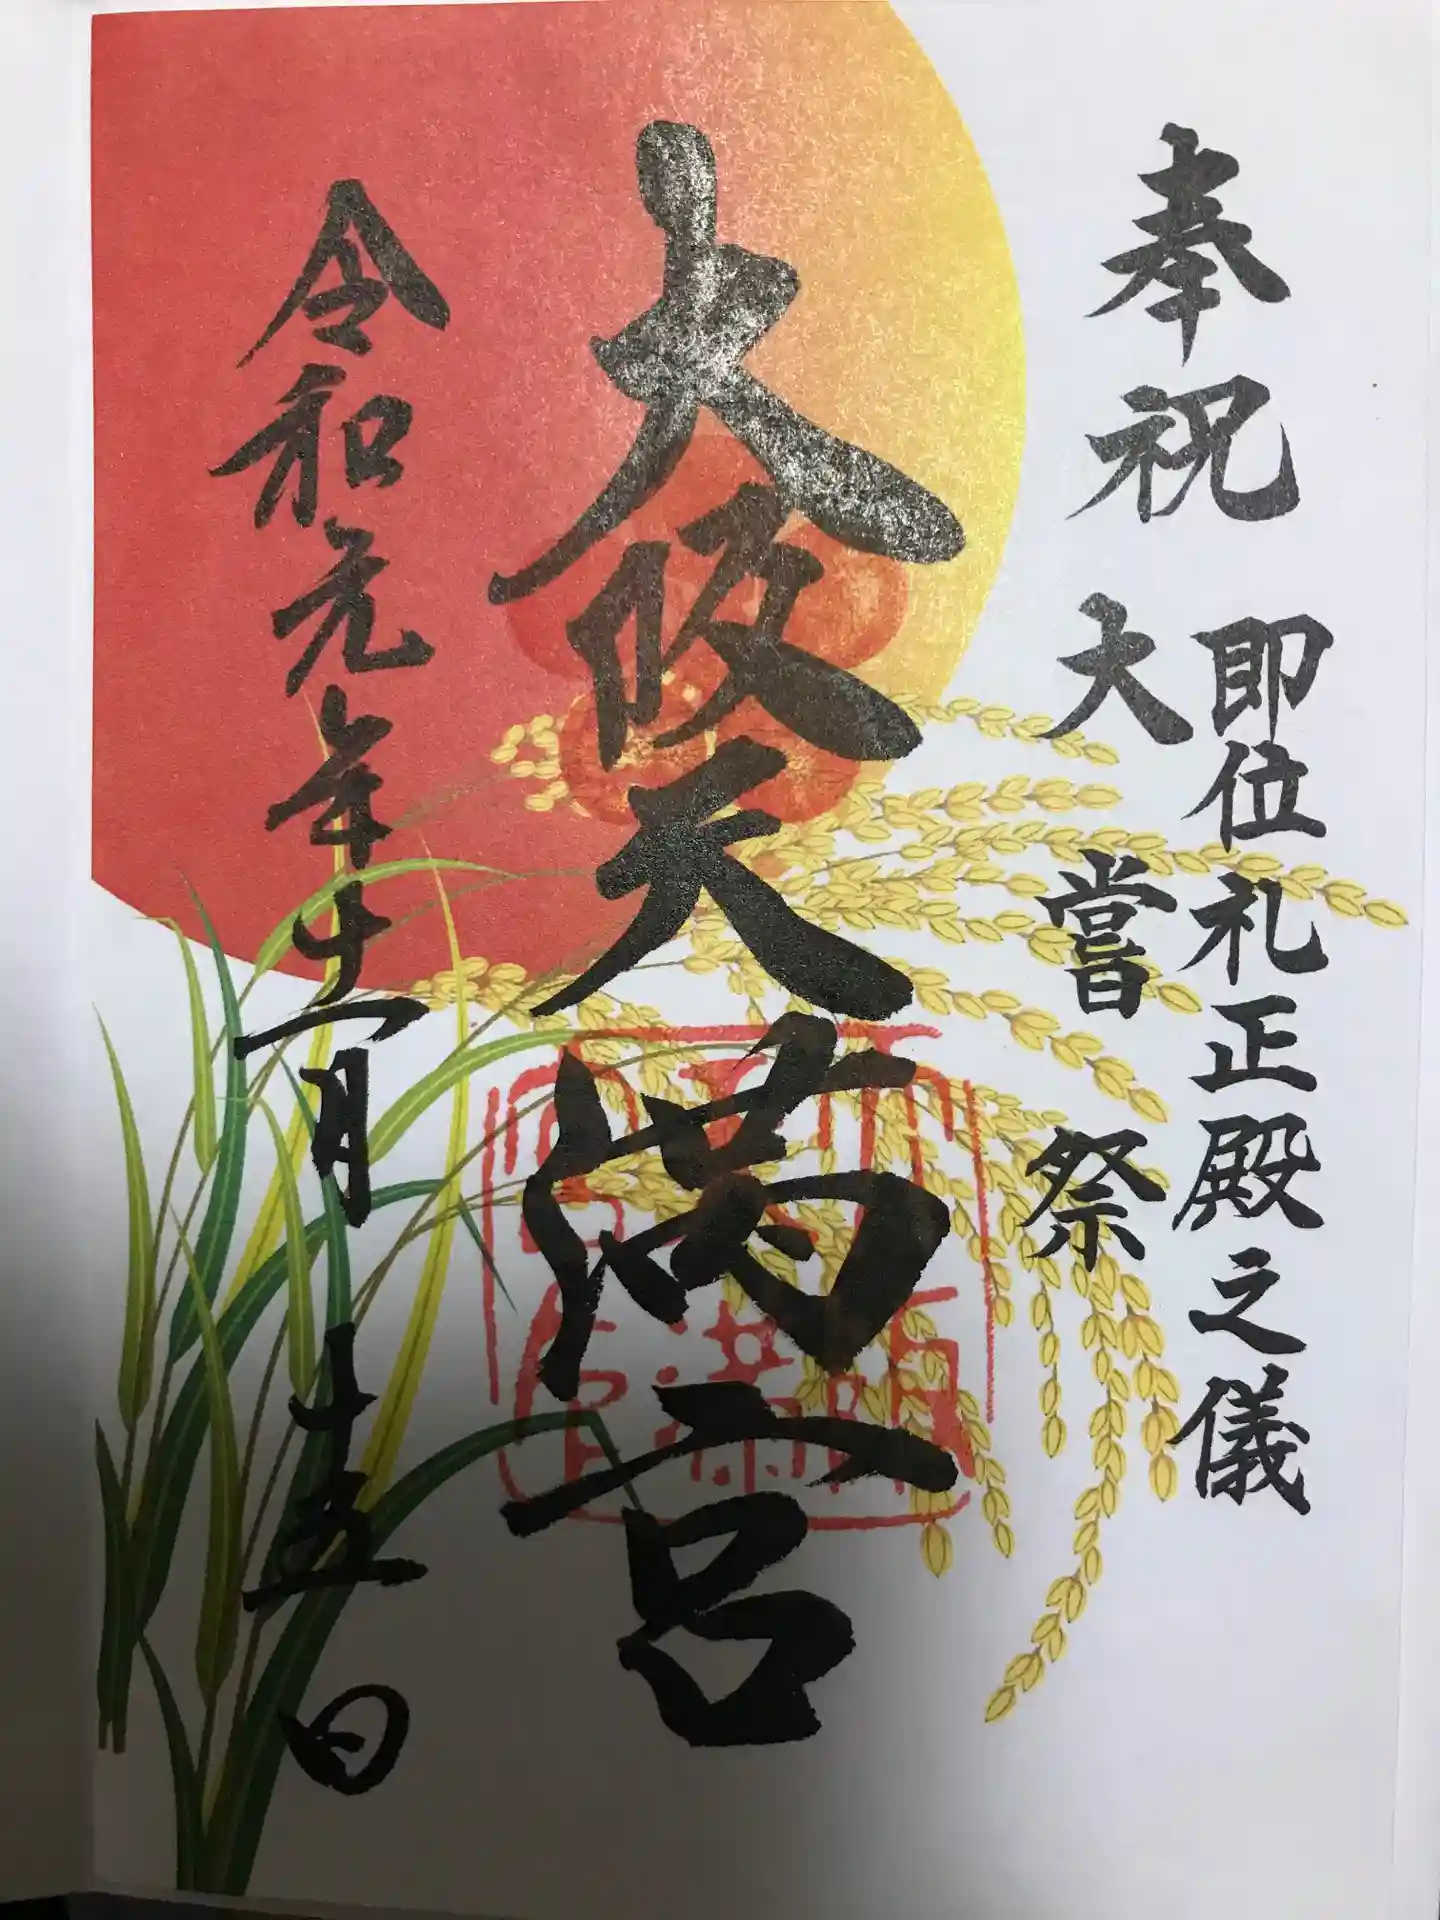 奉祝
即位礼正殿之儀
大嘗祭
大阪天満宮
令和元年十一月十五日